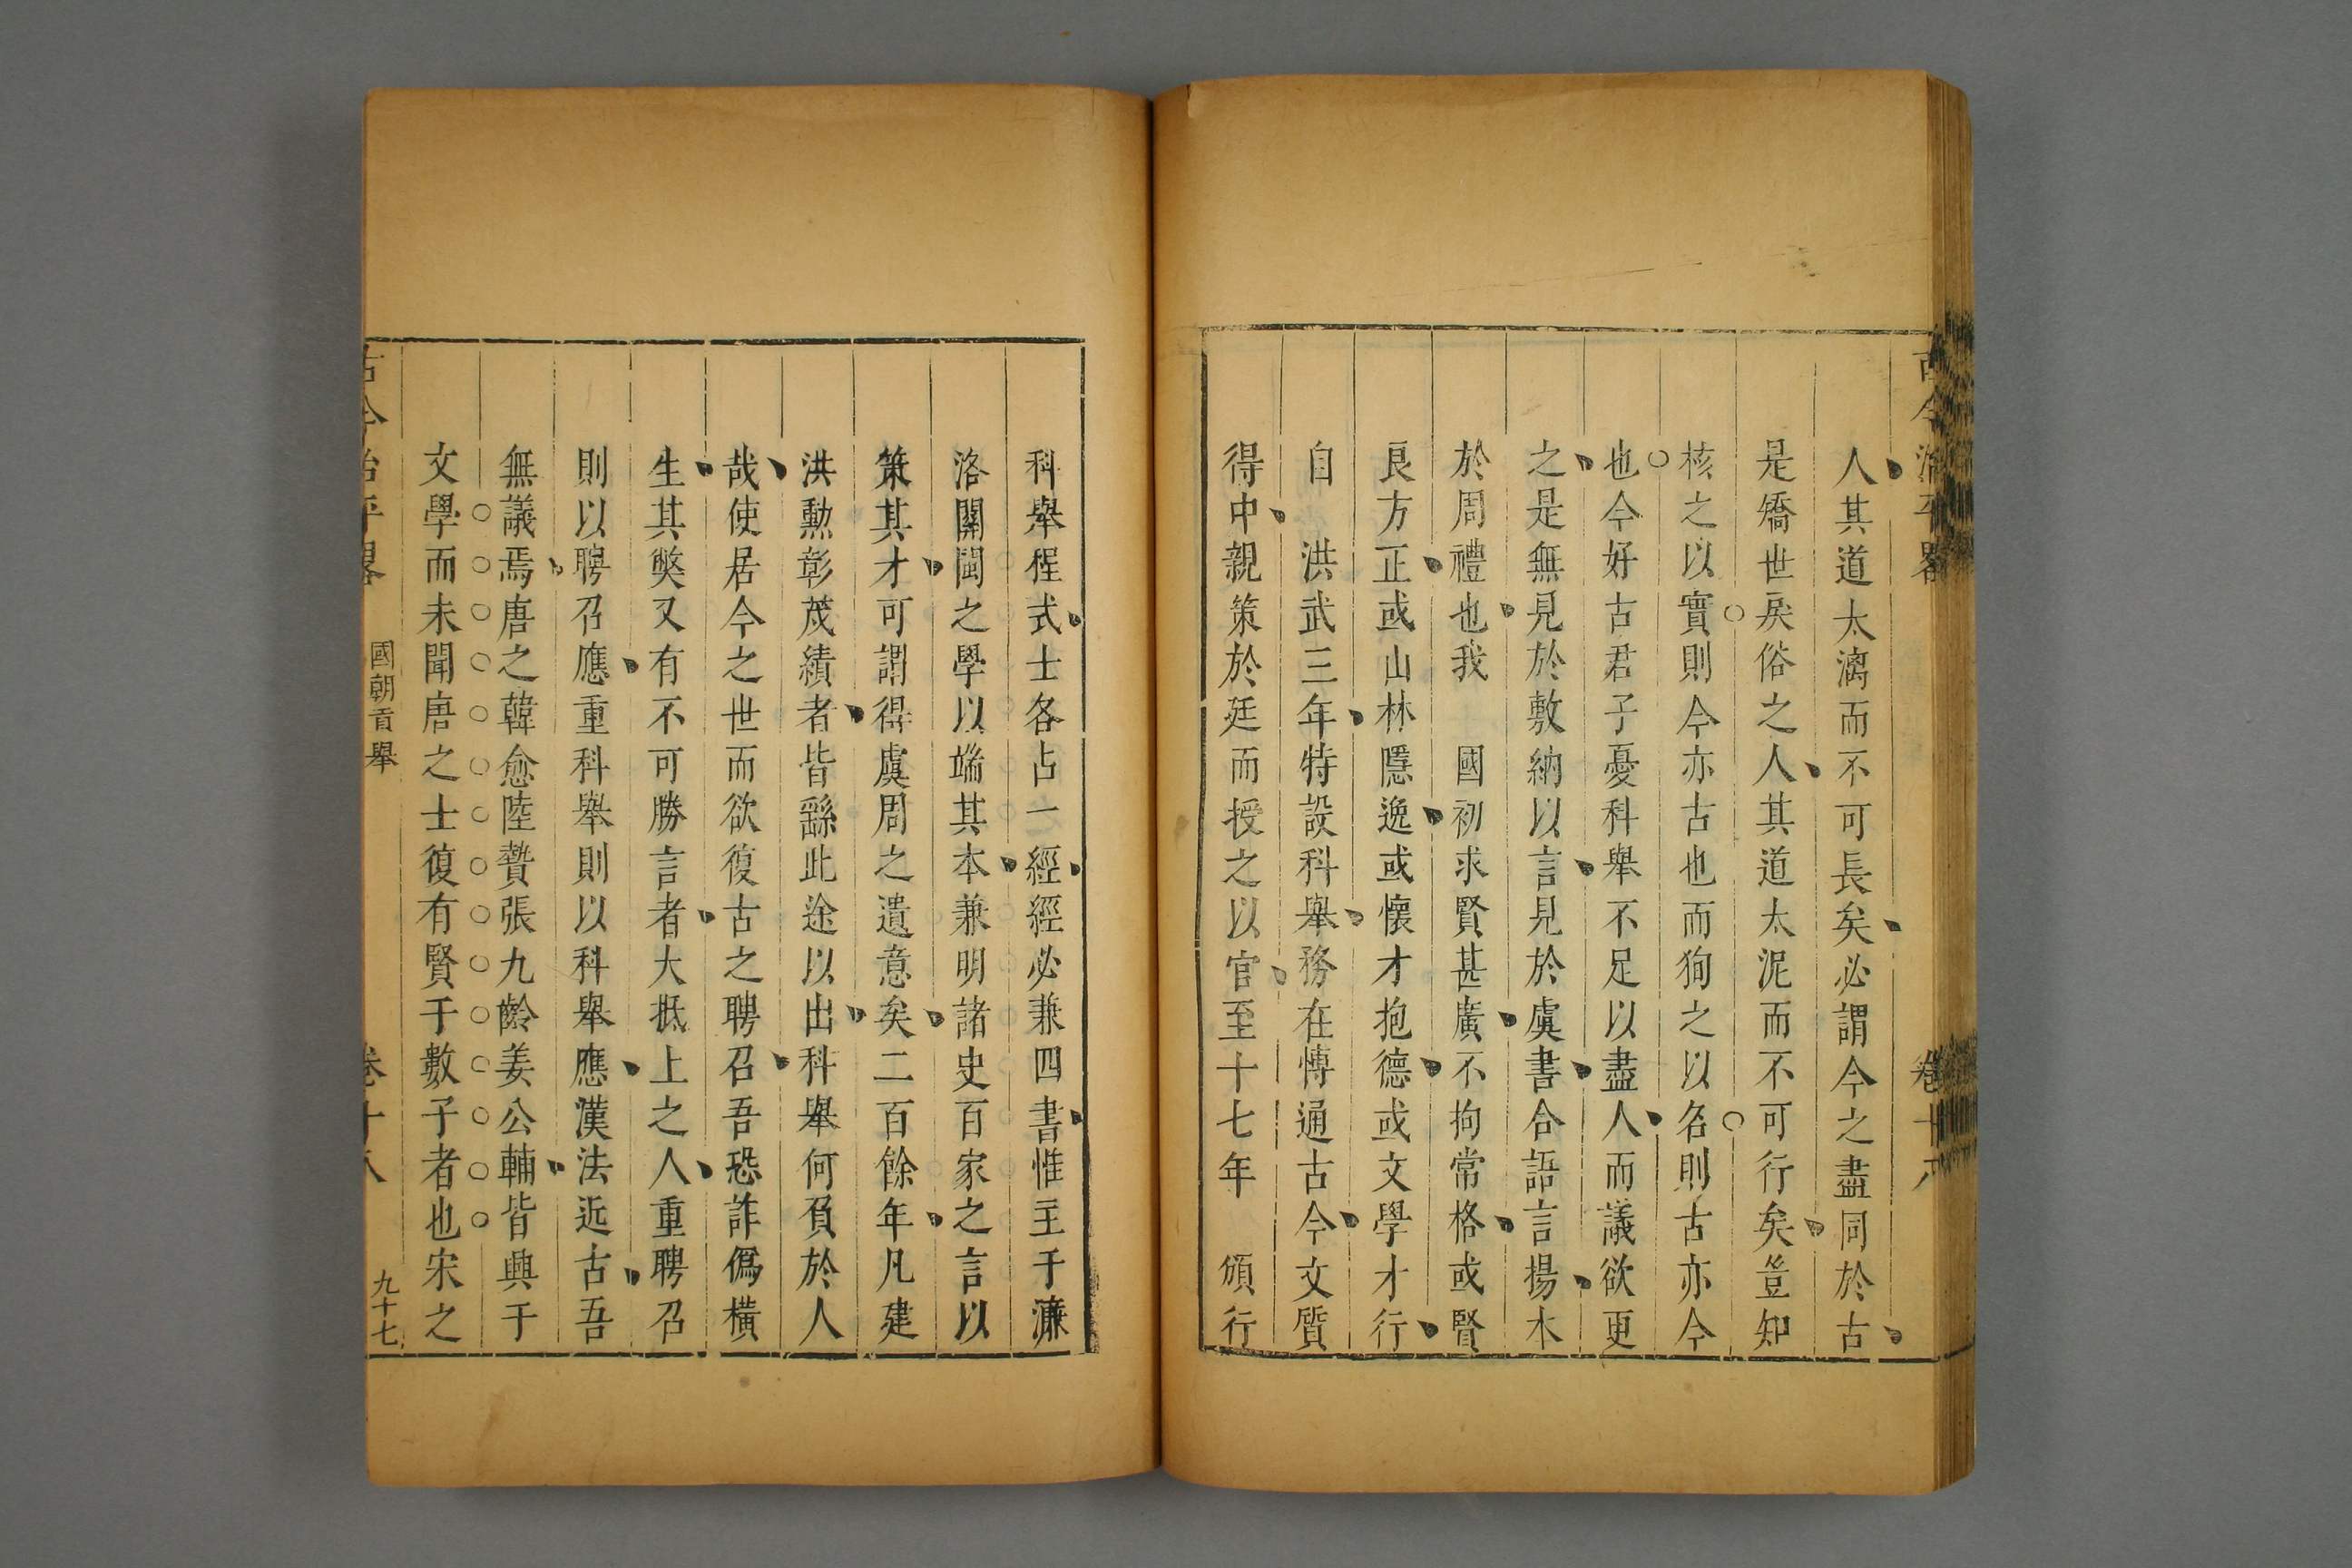 古今治平畧 卷十八
人其道太漓而不可長矣必謂今之盡同於古
是矯世戾俗之人其道太泥而不可行矣豈知
核之以實則今亦古也而狥之以名則古亦今
也今好古君子憂科舉不足以盡人而議欲更
之是無見於敷納以言見於虞書合語言揚木
於周禮也我 國初求賢甚廣不拘常格或賢
良方正或山林隱逸或懷才抱德或文學才行
自 洪武三年特設科舉務在慱通古今文質
得中親策於廷而授之以官至十七年 頒行
科舉程式士各占一經經必兼四書惟主于濂
洛關閩之學以端其本兼明諸史百家之言以
策其才可謂得虞周之遺意矣二百餘年凡建
洪勲彰茂績者皆繇此途以出科舉何負於人
哉使居今之世而欲復古之聘召吾恐詐僞橫
生其獘又有不可勝言者大抵上之人重聘召
則以聘召應重科舉則以科舉應漢法近古吾
無議焉唐之韓愈陸贄張九齡姜公輔皆興于
文學而未聞唐之士復有賢于數子者也宋之
古今治平畧 國朝貢舉 卷十八 九十七